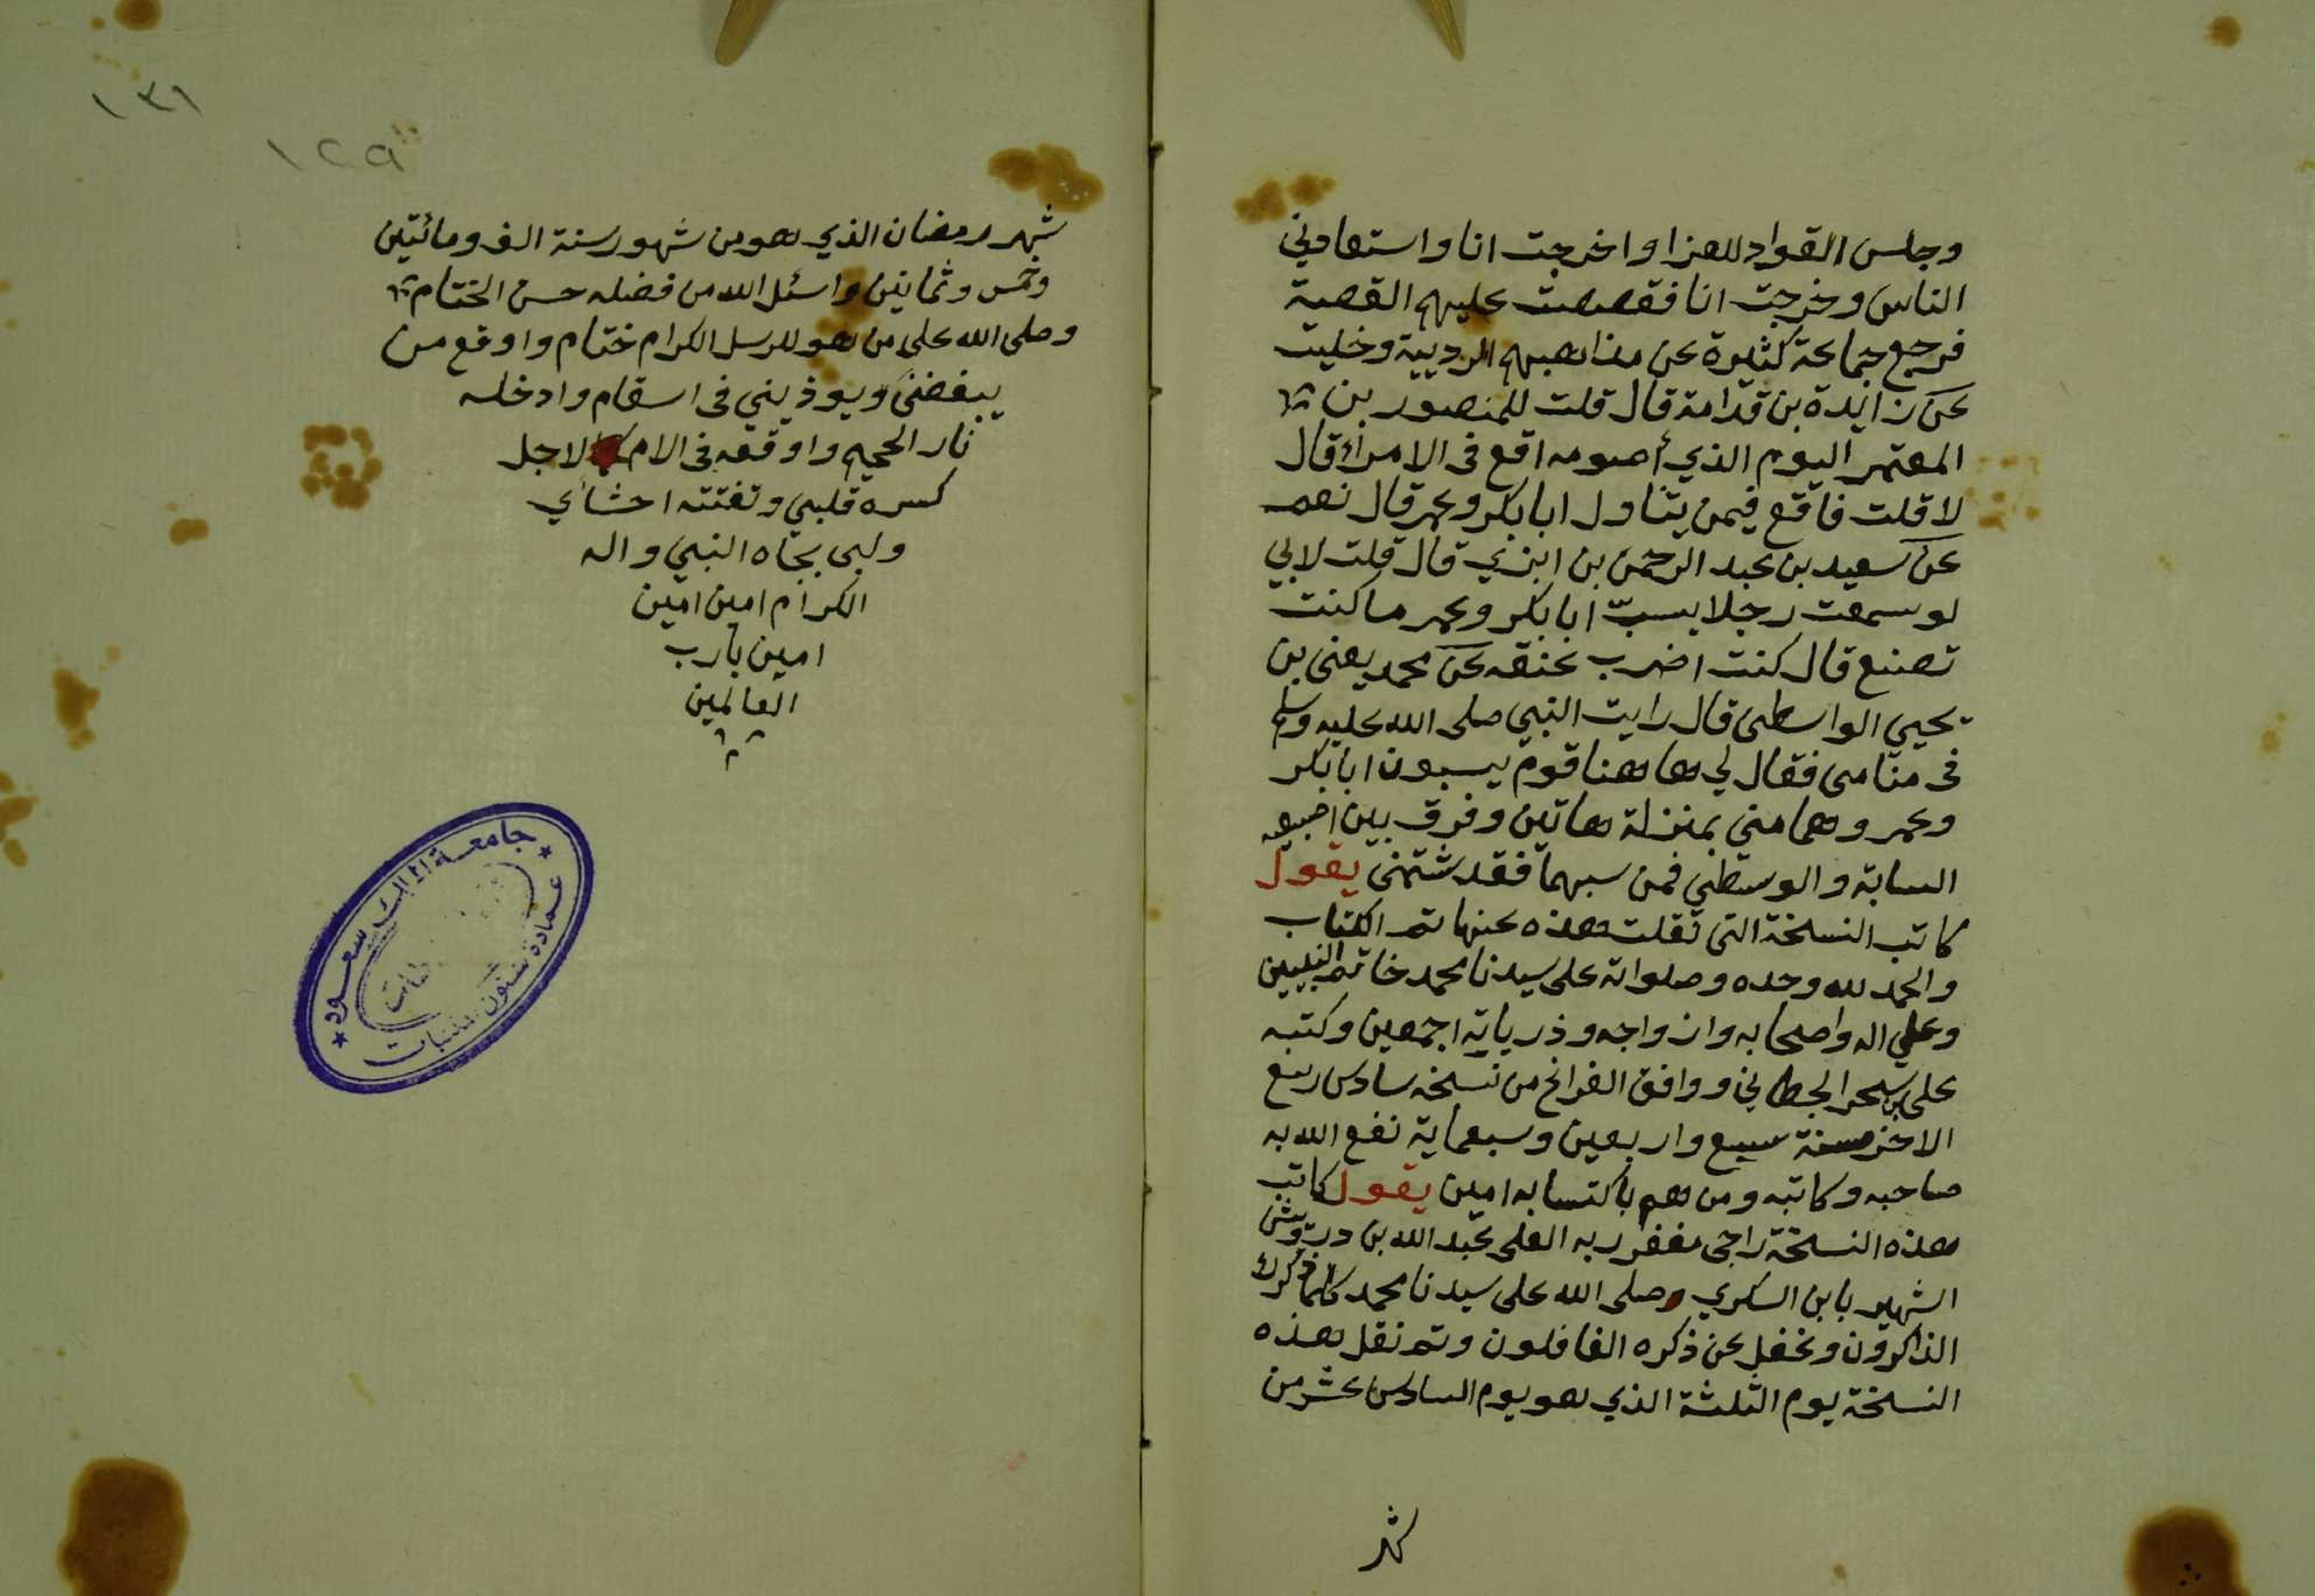 وجلس القواد للعزا واخرجت انا واستعادني
الناس وخرجت انا فقصصت عليهم القصة
فرجع جماعة كثيرة عن مذاهبهم الرديية وخليت
عن زايدة بن قدامة قال قلت للمنصور بن
المعتمر اليوم الذي أصومه اقع في الامرأ قال
لا قلت فاقع فيمن يتناول ابا بكر وعمر قال نعم
عن سعيد بن عبد الرحمن بن ابزي قال قلت لابي
لو سمعت رجلا يسبّ ابا بكر وعمر ما كنت
تصنع قال كنت اضرب عنقه عن محمد يعني بن
يحيي الواسطي قال رايت النبي صلى الله عليه وسلم
في منامي فقال لي ها هنا قوم يسبون ابا بكر
وعمر وهما مني بمنزلة هاتين وفرق بين اصبعيه
السبابة والوسطي فمن سبهما فقد شتمني يقول
كاتب النسخة التي نقلت هذه عنها تم الكتاب
والحمد لله وحده وصلواته على سيدنا محمد خاتم النبيين
وعلي اله واصحابه وازواجه وذرياته اجمعين وكتبه
على بن سحر ووافق الفراغ من نسخه سادس ربيع
الاخر سنة سبع واربعين وسبعماية نفع الله به
صاحبه وكاتبه ومن هم باكتسابه امين يقول كاتب
هذه النسخة راجي مغفر ربه العلي عبد الله بن درويش
الشهير بابن السكري وصلى الله على سيدنا محمد كلما ذكرك
الذاكرون وغفل عن ذكره الغافلون وتم نقل هذه
النسخة يوم الثلثة الذي هو يوم السادس عشر من
شهر
١٣١
١٢٩
شهر رمضان الذي هو من شهور سنة الف ومائتين
وخمس وثمانين واسئل الله من فضله حسن الختام
وصلى الله على من هو للرسل الكرام ختام واوقع من
يبغضني ويوذيني في اسقام وادخله
نار الجحيم واوقعه في الام لاجل
كسره قلبي وتفتته احشاي
ولبي بجاه النبي واله
الكرام امين امين
امين يا رب
العالمين
جامعة الملك سعود
عمادة شئون المكتبات